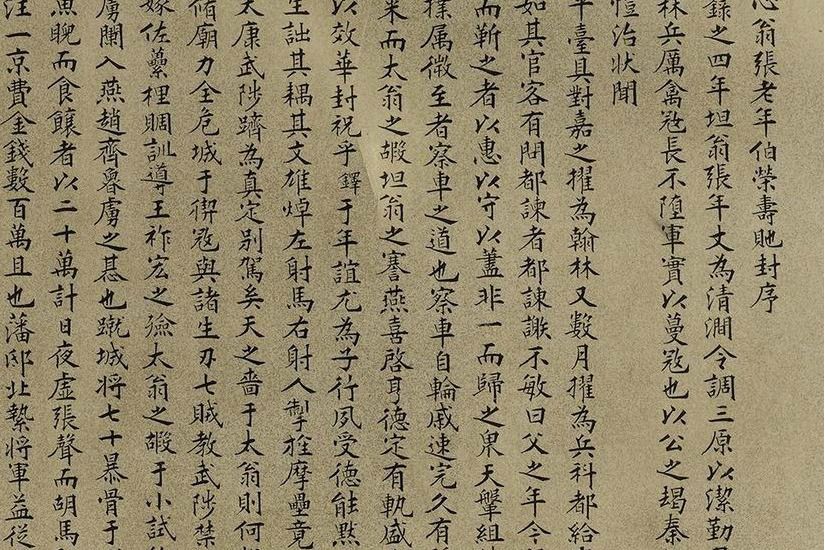 翁張老年伯榮壽貤封序
錄之四年坦翁張年丈為清澗令調三原以潔勤
林兵厲禽寇長不墮軍實以蔓寇也以公之塌秦
愷治狀聞
平臺具對嘉之擢為翰林又數月擢為兵科都給
如其官客有問都諫者都諫謝不敏曰父之年今
而蘄之者以惠以守以藎非一而歸之泉天鞶組
擈属微至者察車之道也察車自輪戚速完久有
来而太翁之嘏坦翁之謇燕喜啓亨德定有執盛
以效華封祝乎鐸于年誼尤為子行夙受德能黙
生詘其耦其文雄焯左射馬右射人掣拴摩壘竟
大康武陟躋為真定别駕矣天之嗇于太翁則何
脩廟力全危城于禊寇與諸生刃七賊教武陟禁
嫁佐虆梩賙訓導王祚宏之殮太翁之嘏于小試
虜闌入燕趙齊魯虜之惎也蹴城将七十暴骨于
魚睨而食饟者以二十萬計日夜虛張聲而胡馬
注一京費金錢數百萬且也藩邸北縶將軍益從